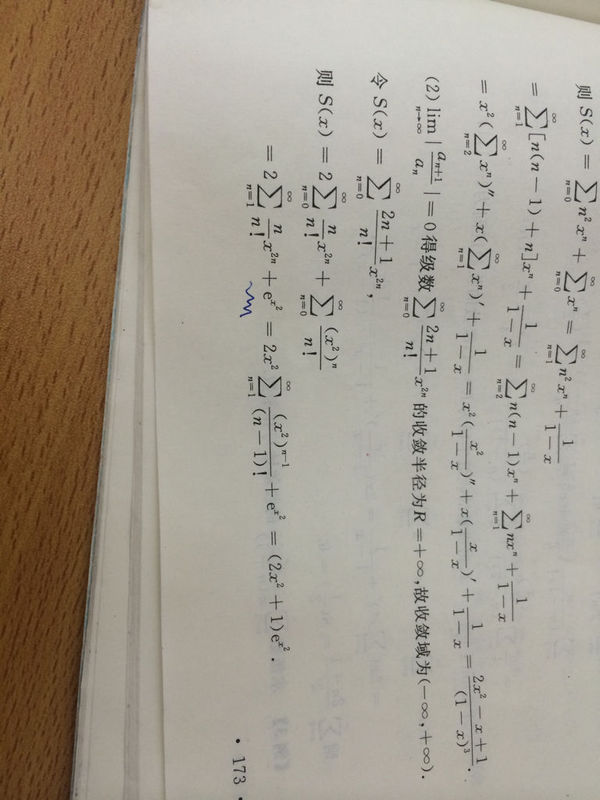 则 S(x) = ∑_{n=0}^{∞} n²xⁿ + ∑_{n=0}^{∞} xⁿ = ∑_{n=1}^{∞} n²xⁿ + \frac{1}{1-x}
= ∑_{n=1}^{∞} [n(n-1)+n]xⁿ + \frac{1}{1-x} = ∑_{n=2}^{∞} n(n-1)xⁿ + ∑_{n=1}^{∞} nxⁿ + \frac{1}{1-x}
= x²(∑_{n=2}^{∞} xⁿ)″ + x(∑_{n=1}^{∞} xⁿ)′ + \frac{1}{1-x} = x²(\frac{x²}{1-x})″ + x(\frac{x}{1-x})′ + \frac{1}{1-x} = \frac{2x²-x+1}{(1-x)³}.
(2) \lim_{n→∞} |\frac{a_{n+1}}{a_n}| = 0 得级数 ∑_{n=0}^{∞} \frac{2n+1}{n!}x^{2n} 的收敛半径为 R = +∞,故收敛域为(-∞,+∞).
令 S(x) = ∑_{n=0}^{∞} \frac{2n+1}{n!}x^{2n},
则 S(x) = 2∑_{n=0}^{∞} \frac{n}{n!}x^{2n} + ∑_{n=0}^{∞} \frac{(x²)ⁿ}{n!}
= 2∑_{n=1}^{∞} \frac{n}{n!}x^{2n} + e^{x²} = 2x²∑_{n=1}^{∞} \frac{(x²)^{n-1}}{(n-1)!} + e^{x²} = (2x²+1)e^{x²}.
· 173 ·